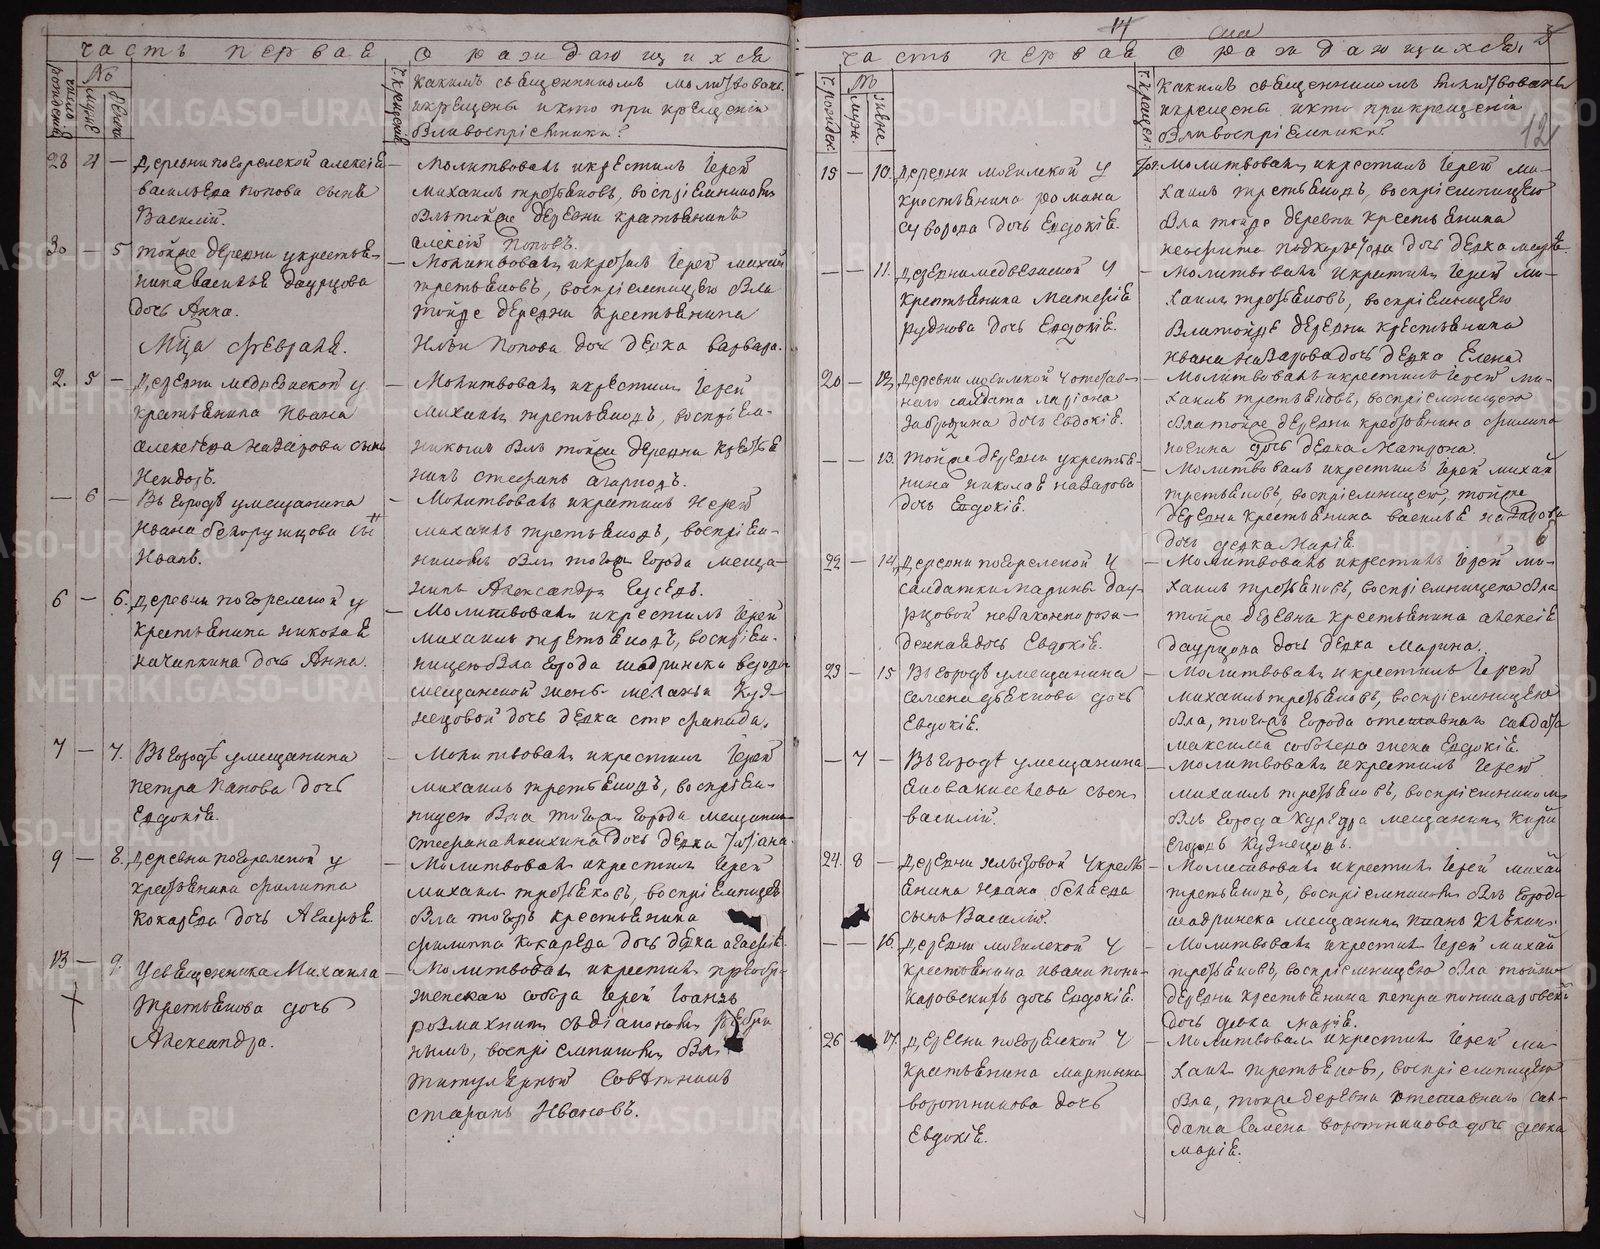 часть первая О раждающихся
число рождения
№
мужие
женск
Ч. крещения
Какимъ священникомъ молитвованъ
и крещенъ и кто при крещенiи
были воспрiемники?
28 4 — Деревни погорелской алексiя
васильева попова сынъ
Василiй.
— Молитвовалъ и крестилъ Iерей
михаилъ третьяковъ, воспрiемникомъ
былъ тойже деревни крестьянинъ
алексей поповъ.
30 — 5 Тойже деревни у крестья-
нина василья даурцова
дочь Анна.
— Молитвовалъ и крестилъ Iерей михаилъ
третьяковъ, воспрiемницею была
тойже деревни крестьянина
Ильи Попова дочь девка варвара.
Мца Февраля.
2. 5 — Деревни медвежской у
крестьянина Ивана
алексеева назарова сынъ
— Молитвовалъ и крестилъ Iерей
михаилъ третьяковъ, воспрiем-
никомъ былъ тойже деревни крестья
нинъ стефанъ
— 6 — Въ городѣ у мещанина
Ивана белоружцова сынъ
Иванъ.
— Молитвовалъ и крестилъ Iерей
михаилъ третьяковъ, воспрiем-
никомъ былъ тогожъ города меща-
нинъ Александръ Гусевъ.
6 — 6. Деревни погорелской у
крестьянина николая
начапкина дочь Анна.
— Молитвовалъ и крестилъ Iерей
михаилъ третьяковъ, воспрiем-
ницею была города шадринска
мещанской жены меланьи Куз-
нецовой дочь девка стефанида.
7 — 7. Въ городѣ у мещанина
петра Панова дочь
Евдокiя.
— Молитвовалъ и крестилъ Iерей
михаилъ третьяковъ, воспрiем-
ницею была тогожъ города мещанина
дочь девка Татiана
9 — 8. Деревни погорелской у
крестьянина филиппа
Кокарева дочь Агафья
— Молитвовалъ и крестилъ Iерей
михаилъ третьяковъ, воспрiемницею
была тогожъ крестьянина
филиппа Кокарева дочь девка агафья.
13 — 9. У священника Михаила
Третьякова дочь
Александра.
— Молитвовалъ и крестилъ преобра-
женскаго собора Iерей Iоаннъ
розмахнинъ съ дiакономъ
нымъ, воспрiемникомъ былъ
титулярный Советникъ
стефанъ Ивановъ.
14
12
часть первая О раждающихся.
Ч. рожден.
№
мужие.
женс.
Ч. крещен.
Какимъ священникомъ молитвованъ
и крещенъ и кто при крещенiи
были воспрiемники?
15 — 10. Деревни могилской у
крестьянина романа
суворова дочь Евдокiя.
Молитвовалъ и крестилъ Iерей ми-
хаилъ третьяковъ, воспрiемницею
была тойже деревни крестьянина
дочь девка
— — 11. Деревни медвежской у
крестьянина Матвея
руднова дочь Евдокiя.
— Молитвовалъ и крестилъ Iерей ми-
хаилъ третьяковъ, воспрiемницею
была тойже деревни крестьянина
ивана назарова дочь девка Елена.
20 — 12. Деревни могилской у отстав-
наго солдата лариона
дочь Евдокiя.
— Молитвовалъ и крестилъ Iерей ми-
хаилъ третьяковъ, воспрiемницею
была тойже деревни крестьянина филипа
дочь девка Матрона.
— — 13. Тойже деревни у крестья-
нина николая назарова
дочь Евдокiя.
— Молитвовалъ и крестилъ Iерей михаилъ
третьяковъ, воспрiемницею, тойже
деревни крестьянина василья назарова
дочь девка Марiя.
22 — 14. Деревни погорелской у
солдатки марины дау-
рцовой незаконнорож-
денная дочь Евдокiя.
— Молитвовалъ и крестилъ Iерей ми-
хаилъ третьяковъ, воспрiемницею была
тойже деревни крестьянина алексея
даурцова дочь девка Марина.
23 — 15 Въ городѣ у мещанина
семена дочь
Евдокiя.
— Молитвовалъ и крестилъ Iерей
михаилъ третьяковъ, воспрiемницею
была, тогожъ города отставнаго солдата
максима соболева жена Евдокiя.
— 7 — Въ городѣ у мещанина
сынъ
василiй.
— Молитвовалъ и крестилъ Iерей
михаилъ третьяковъ, воспрiемникомъ
былъ города мещанинъ
Кузнецовъ.
24. 8 — Деревни у кресть-
янина Ивана беляева
сынъ Василiй.
— Молитвовалъ и крестилъ Iерей михаилъ
третьяковъ, воспрiемникомъ былъ города
шадринска мещанинъ
— — 16. Деревни могилской у
крестьянина ивана пони-
каровскихъ дочь Евдокiя.
— Молитвовалъ и крестилъ Iерей михаилъ
третьяковъ, воспрiемницею была тойже
деревни крестьянина петра поникаровскихъ
дочь девка марiя.
26 — 17. Деревни погорелской у
крестьянина мартына
воротникова дочь
Евдокiя.
— Молитвовалъ и крестилъ Iерей ми-
хаилъ третьяковъ, воспрiемницею
была, тойже деревни отставнаго сол-
дата семена воротникова дочь девка
марiя.
METRIKI.GASO-URAL.RU